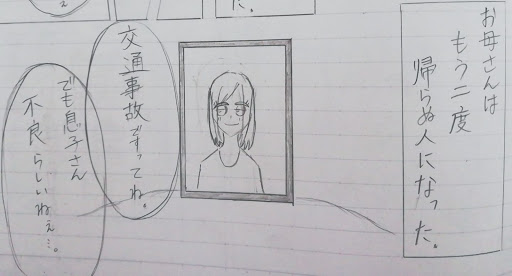 お母さんは
もう二度
帰らぬ人になった。
交通事故ですってね。
でも息子さん
不良らしいねぇ…。
た。